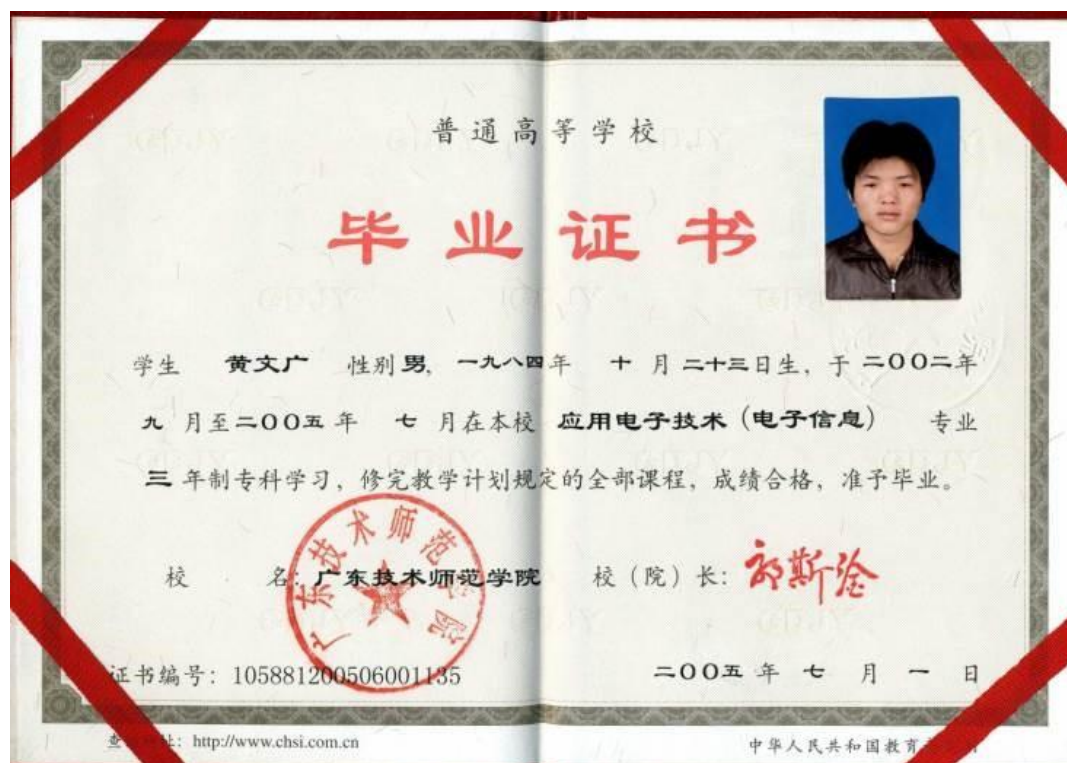 普通高等学校
毕业证书
学生 黄文广 性别 男, 一九八四年 十 月 二十三日生, 于 二〇〇二年
九 月至 二〇〇五 年 七 月在本校 应用电子技术（电子信息） 专业
三 年制专科学习, 修完教学计划规定的全部课程, 成绩合格, 准予毕业。
广东技术师范学院
校 名: 广东技术师范学院 校（院）长:
证书编号: 105881200506001135 二〇〇五 年 七 月 一 日
查 址: http://www.chsi.com.cn 中华人民共和国教育